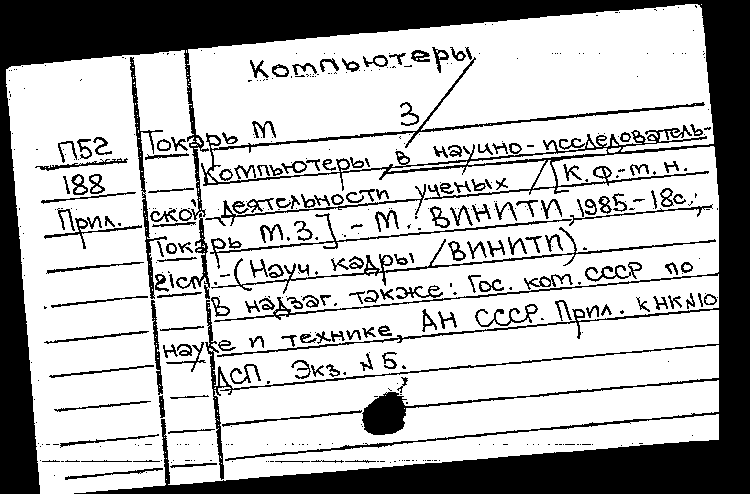 Компьютеры
П52 Токарь, М З
188 Компьютеры в научно-исследователь-
Прил. ской деятельности ученых / [К.ф.-м.н.
Токарь М.З.]. - М.: ВИНИТИ, 1985.- 18с.;
21см.- (Науч. кадры / ВИНИТИ).
В надзаг. также: Гос. ком. СССР по
науке и технике, АН СССР. Прил. к НК N10
ДСП. Экз. N 5.